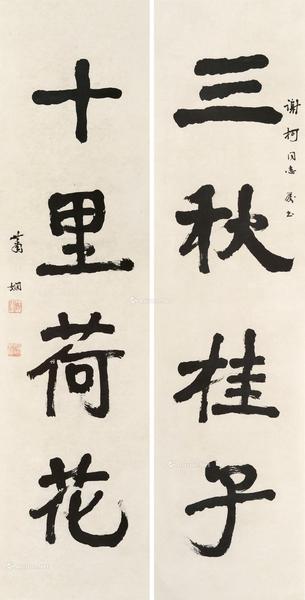 三秋桂子
谢柯同志属书
十里荷花
萧娴